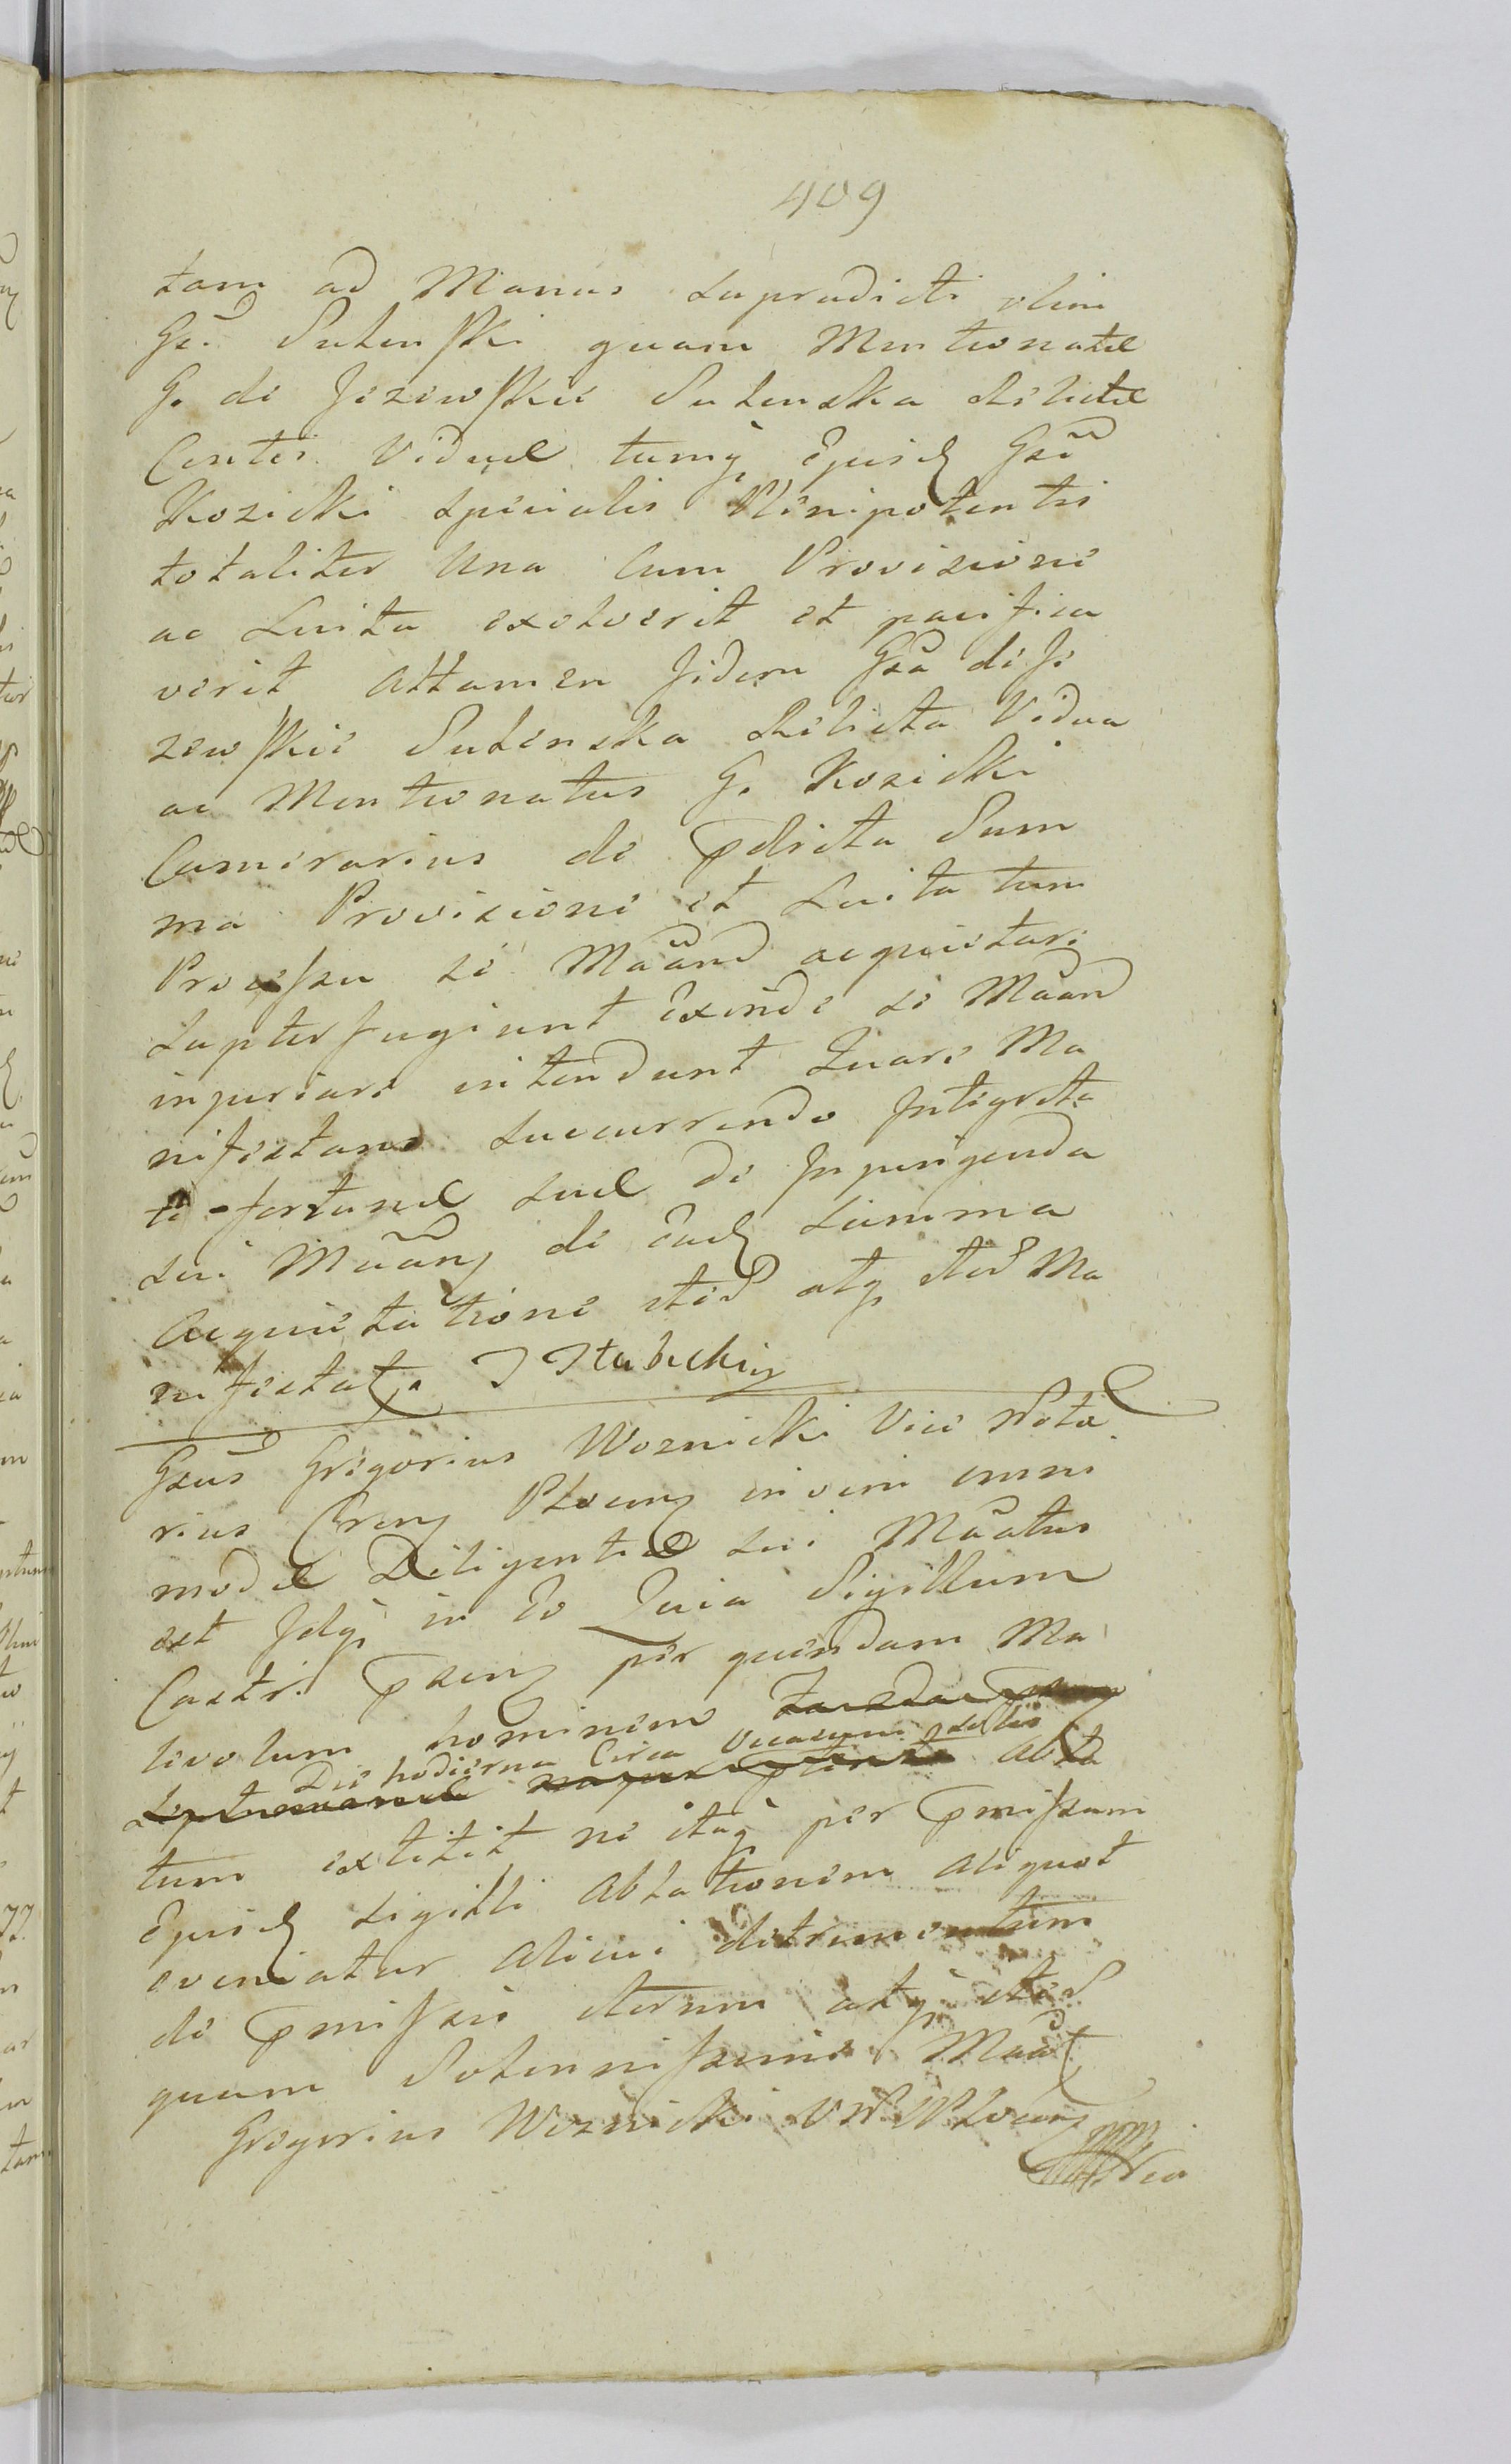 409
tam ad Manus supradicti olim
Gsi. Sulenski quam Mentionatæ
G. de Jezewskie Sulenska Relictæ
Consters Viduæ tumq Ejusd Gsi
Kozicki specialis Plenipotentis
totaliter Una Cum Provisione
ac Luita exolverit et pacifica
verit Attamen Iidem Gsa de Je
zewskie Sulenska Relicta Vidua
ac Mentionatus G. Kozicki
Camerarius de pdicta Sum
ma Provisione et Luita tum
Processu se Maand acquietare
supterfugiunt Exinde se Maand
injuriare intendunt Quare Ma
nifestans succurrendo Integrita
ti fortunæ suæ de Inpingenda
sui Maang de Ead summa
Acquietatione itid atq iteb Ma
nifestat.
Gsus Gregorius Woznicki Vice Nota
rius Cren Plocen in vim omni
modæ Diligentiæ sui Maatus
est Idq in Eo Quia Sigillum
Castri psen per quendam Ma
levolum hominem
Die hodierna Circa Occasum Solis
abla
tum extitit ne itaq per pmissam
Ejusd sigilli Ablationem aliquot
eveniatur Alicui detrimentum
de pmissis iterum atq iteb
quam Solennissime Maat
Gregorius Woznicki VN Plocen